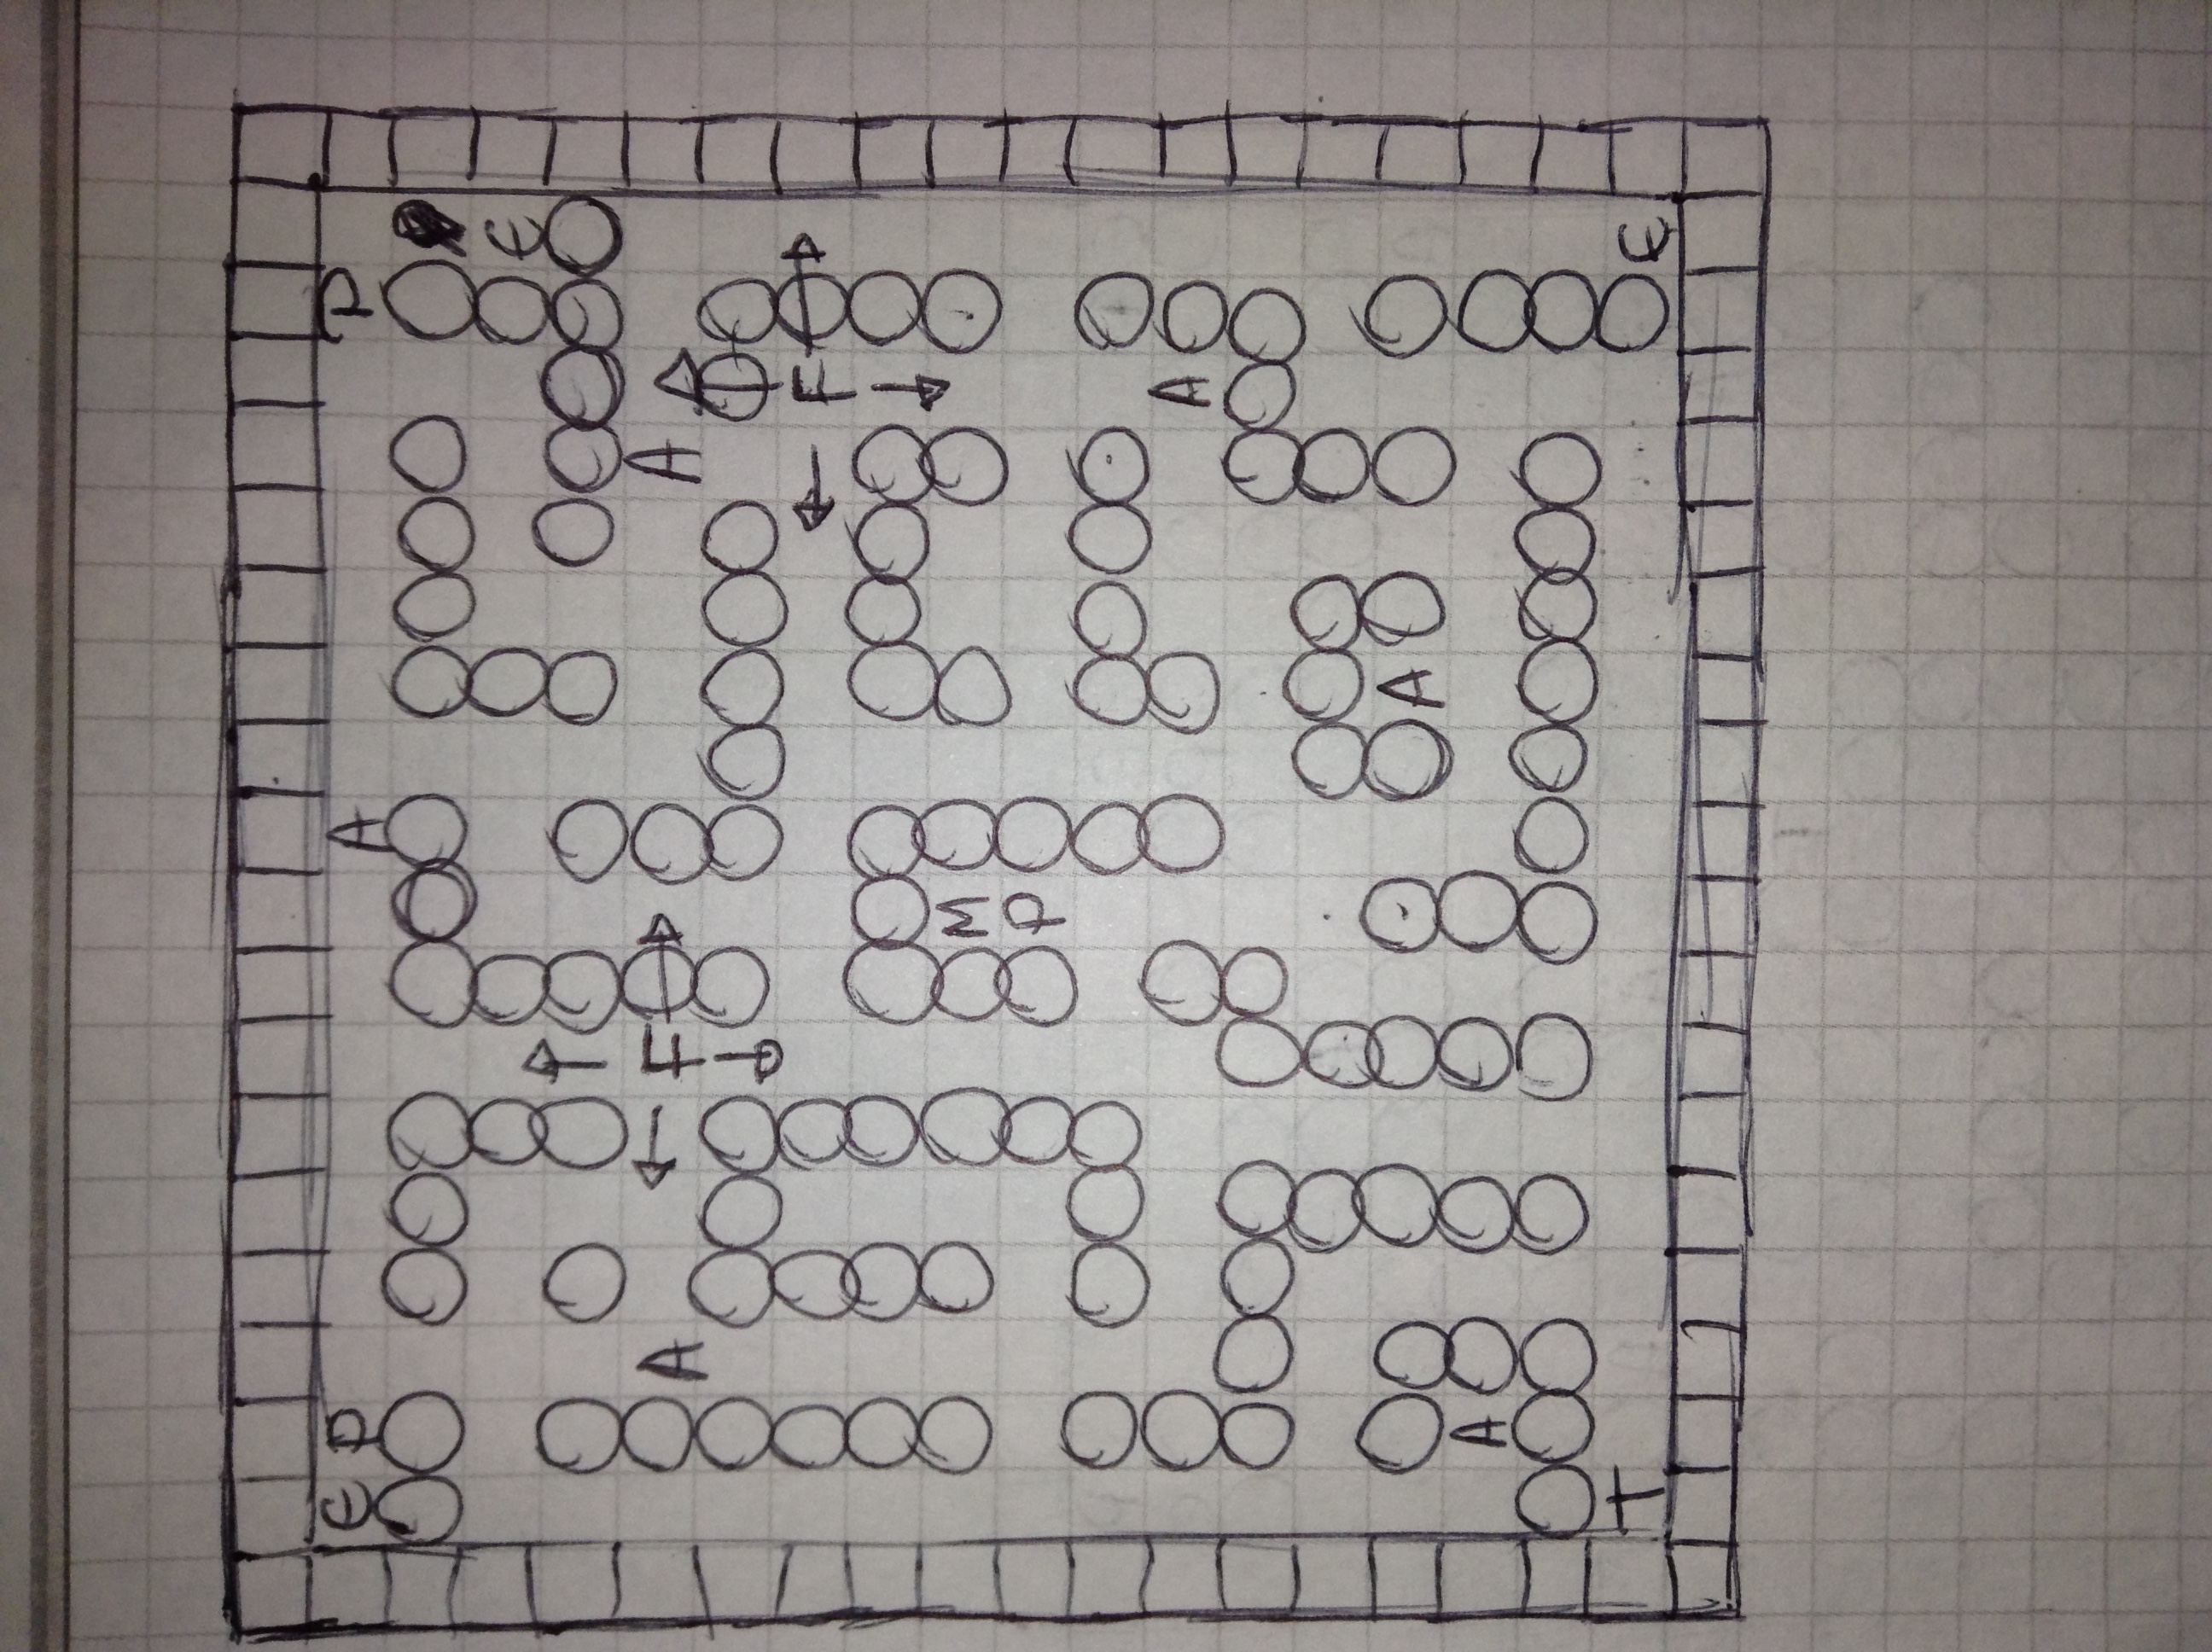 E P A P
E
A F A
F
M
P
A
A
A
T E